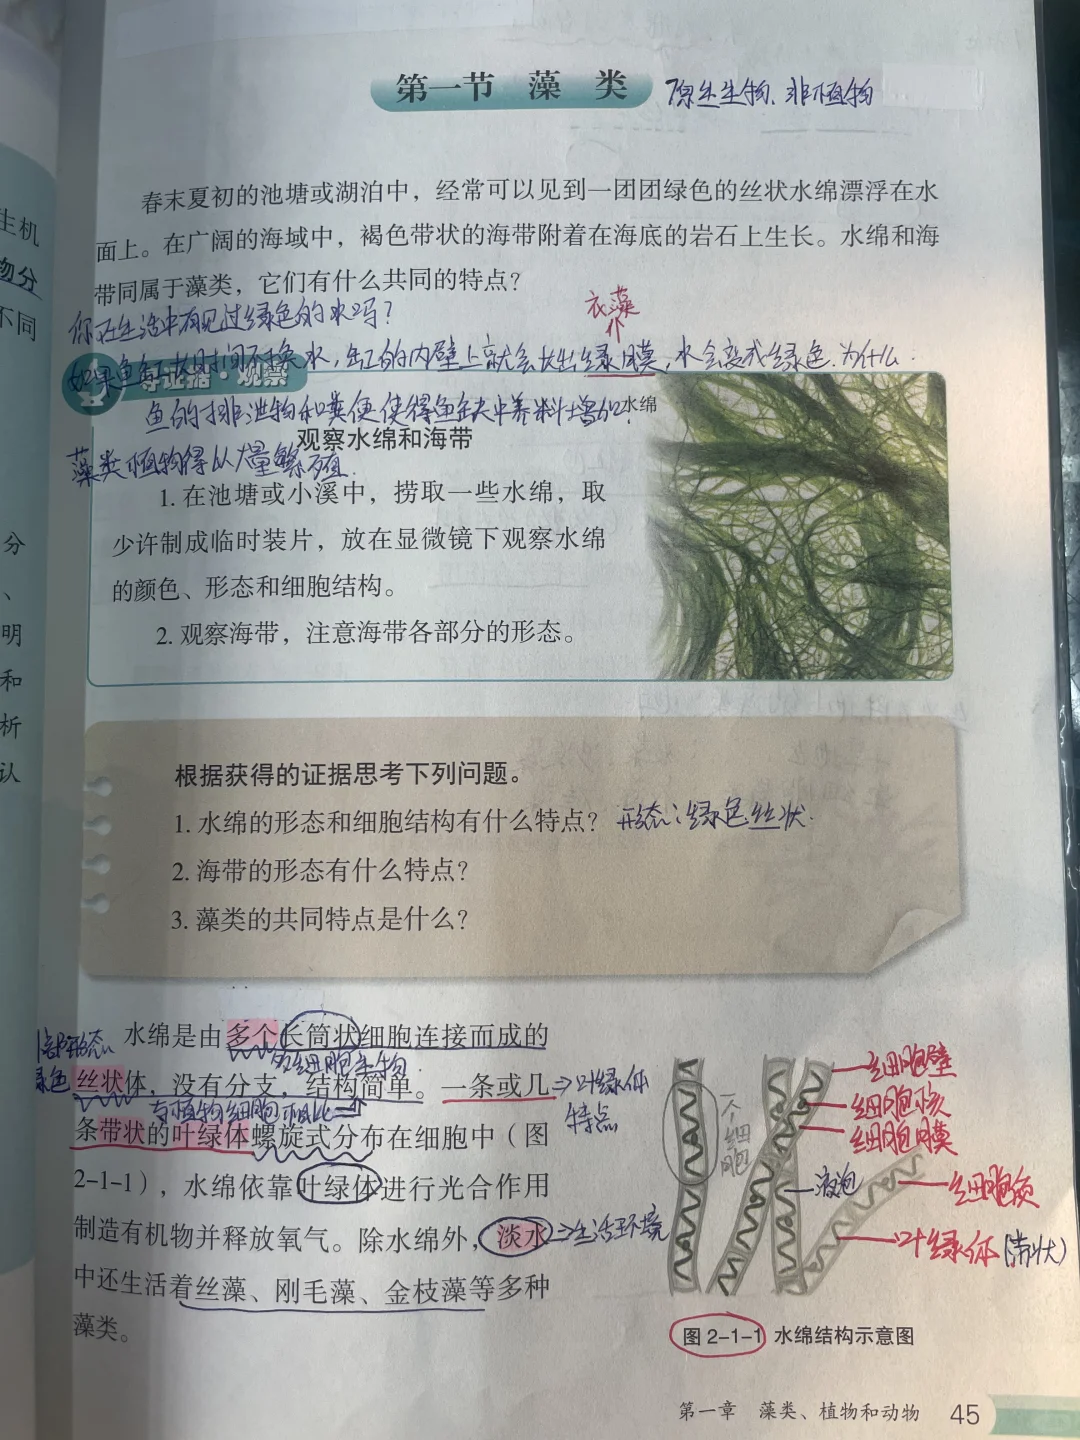 第一节 藻类 原生生物、非植物
春末夏初的池塘或湖泊中，经常可以见到一团团绿色的丝状水绵漂浮在水
面上。在广阔的海域中，褐色带状的海带附着在海底的岩石上生长。水绵和海
带同属于藻类，它们有什么共同的特点？
衣藻
你在生活中有见过绿色的水吗？
如果鱼缸长时间不换水，缸的内壁上就会长出绿膜，水会变成绿色.为什么.
寻证据·观察
鱼的排泄物和粪便使得鱼缸中养料增加.
水绵
观察水绵和海带
藻类植物得以大量繁殖.
1. 在池塘或小溪中，捞取一些水绵，取
少许制成临时装片，放在显微镜下观察水绵
的颜色、形态和细胞结构。
2. 观察海带，注意海带各部分的形态。
根据获得的证据思考下列问题。
1. 水绵的形态和细胞结构有什么特点？ 形态：绿色丝状.
2. 海带的形态有什么特点？
3. 藻类的共同特点是什么？
水绵是由多个长筒状细胞连接而成的
多细胞生物.
绿色
丝状体，没有分支，结构简单。一条或几
⇒叶绿体
特点
与植物细胞相比
条带状的叶绿体螺旋式分布在细胞中（图
2-1-1），水绵依靠叶绿体进行光合作用
制造有机物并释放氧气。除水绵外，淡水
⇒生活环境
中还生活着丝藻、刚毛藻、金枝藻等多种
藻类。
一个细胞
细胞壁
细胞核
细胞膜
液泡
细胞质
叶绿体(带状)
图 2-1-1 水绵结构示意图
第一章 藻类、植物和动物 45
生机
物分
不同
分
、
明
和
析
认